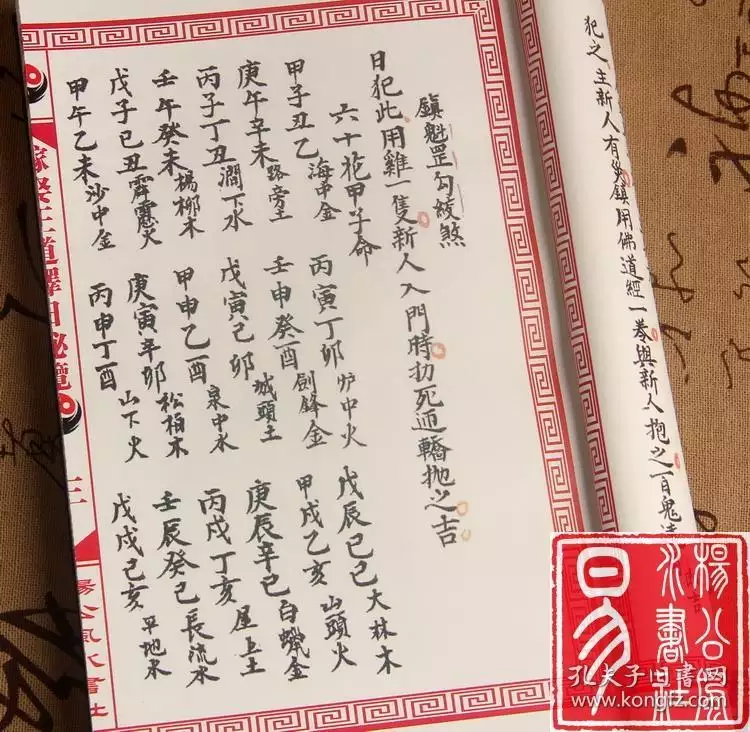 犯之主新人有災鎮用佛道經一卷與新人抱之百鬼
吉
鎮魁罡勾絞煞
日犯此用雞一隻新人入門時死轎拋之吉
六十花甲子命
甲子丑乙海中金 丙寅丁卯炉中火 戊辰巳己大林木
庚午辛未路旁土 壬申癸酉劍鋒金 甲戌乙亥山頭火
丙子丁丑澗下水 戊寅己卯城頭土 庚辰辛巳白蠟金
壬午癸未楊柳木 甲申乙酉泉中水 丙戌丁亥屋上土
戊子己丑霹靂火 庚寅辛卯松柏木 壬辰癸巳長流水
甲午乙未沙中金 丙申丁酉山下火 戊戌己亥平地木
嫁娶王道擇日秘覽
三
楊公風水書社
楊公風
水書社
易
孔夫子旧书网
www.kongfz.com